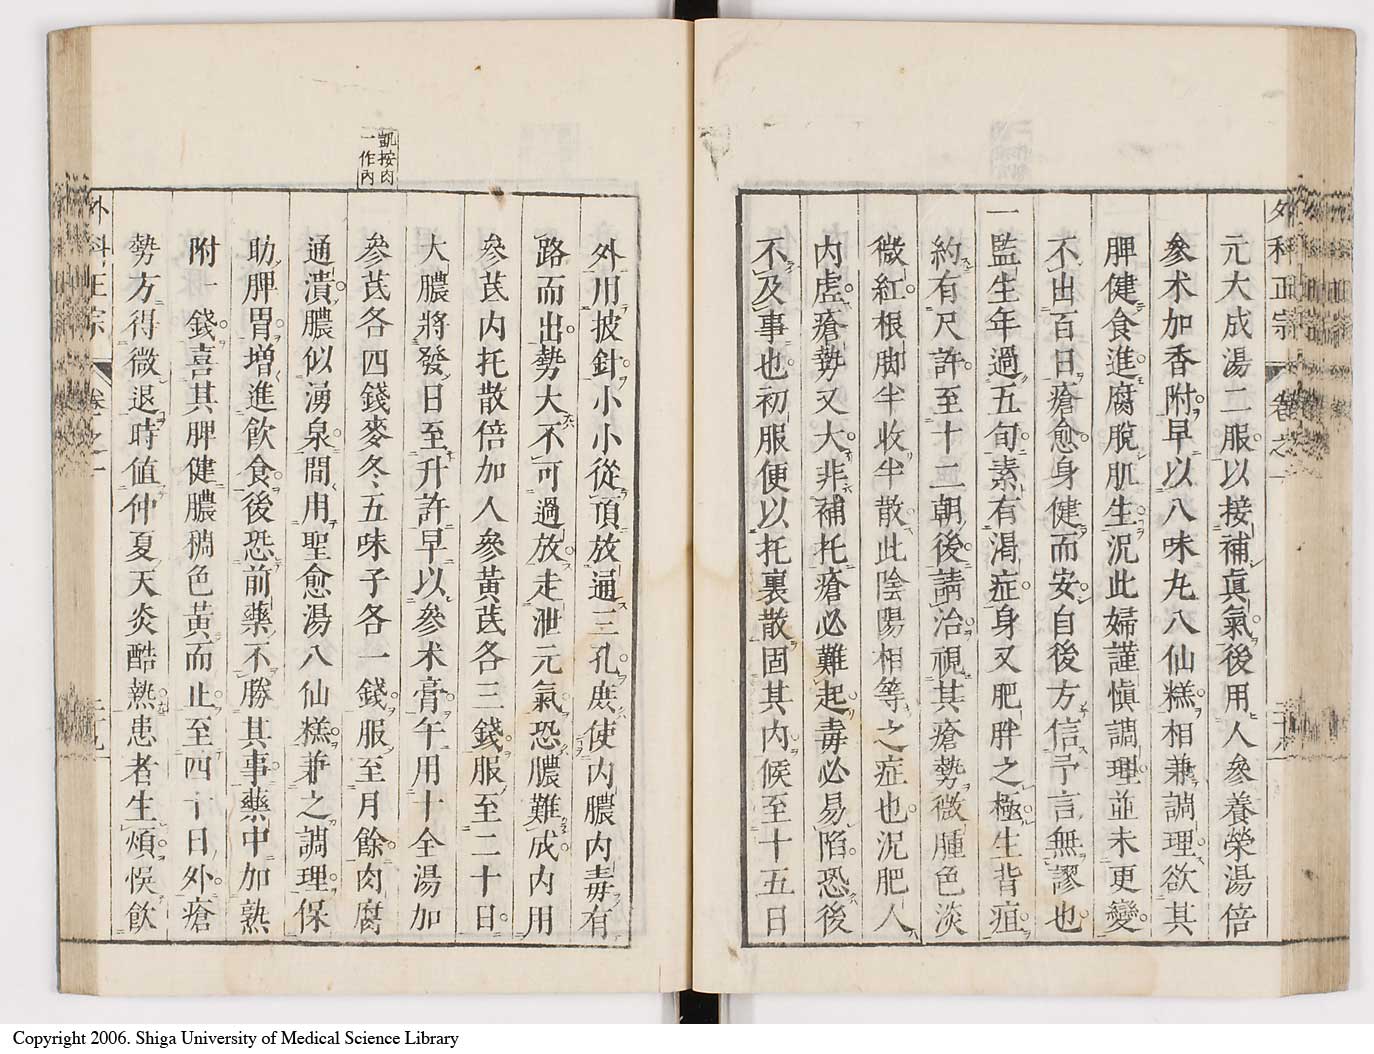 外科正宗 卷之一
元大成湯二服以接補眞氣後用人參養榮湯倍
參朮加香附早以八味丸八仙糕相兼調理欲其
脾健食進腐脫肌生況此婦謹愼調理並未更變
不出百日瘡愈身健而安自後方信予言無謬也
一監生年過五旬素有渴症身又肥胖之極生背疽
約有尺許至十二朝後請治視其瘡勢微腫色淡
微紅根脚半收半散此陰陽相等之症也況肥人
內虛瘡勢又大非補托瘡必難起毒必易陷恐後
不及事也初服便以托裏散固其內候至十五日
外用披針小小從頂放通三孔庶使內膿內毒有
路而出勢大不可過放走泄元氣恐膿難成內用
參芪內托散倍加人參黃芪各三錢服至二十日
大膿將發日至升許早以參朮膏午用十全湯加
凱按肉
一作內
參芪各四錢麥冬五味子各一錢服至月餘肉腐
通潰膿似湧泉間用聖愈湯八仙糕兼之調理保
助脾胃增進飮食後恐前藥不勝其事藥中加熟
附一錢喜其脾健膿稠色黃而止至四十日外瘡
勢方得微退時値仲夏天炎酷熱患者生煩悞飮
外科正宗 卷之一
Copyright 2006. Shiga University of Medical Science Library